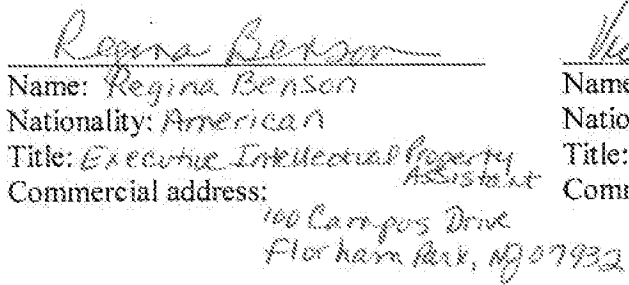 Regina Benson
Name: Regina Benson
Nationality: American
Title: Executive Intellectual Property Assistant
Commercial address:
100 Campus Drive
Florham Park, NJ 07932
Name
Natio
Title:
Comm